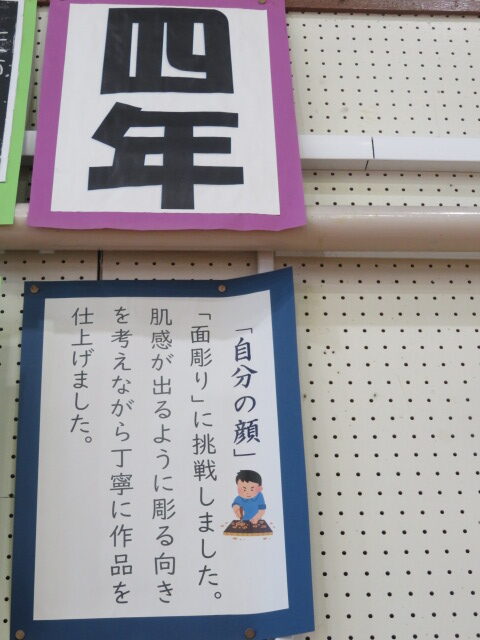 四年
「自分の顔」
「面彫り」に挑戦しました。
肌感が出るように彫る向き
を考えながら丁寧に作品を
仕上げました。